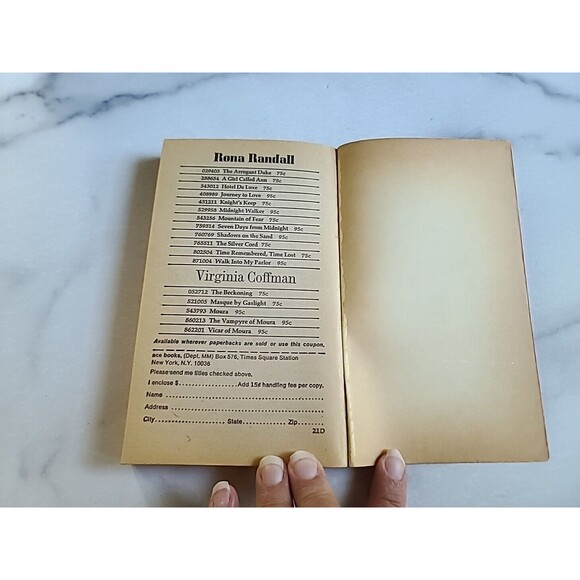 Rona Randall
029405 The Arrogant Duke 75c
288654 A Girl Called Ann 75c
343012 Hotel De Luxe 75c
408989 Journey to Love 95c
451211 Knight's Keep 75c
529958 Midnight Walker 95c
543256 Mountain of Fear 75c
759514 Seven Days from Midnight 95c
760769 Shadows on the Sand 95c
765511 The Silver Cord 75c
802504 Time Remembered, Time Lost 75c
871004 Walk Into My Parlor 95c
Virginia Coffman
052712 The Beckoning 75c
521005 Masque by Gaslight 75c
543793 Moura 95c
860213 The Vampyre of Moura 95c
862201 Vicar of Moura 95c
Available wherever paperbacks are sold or use this coupon.
ace books, (Dept. MM) Box 576, Times Square Station
New York, N.Y. 10036
Please send me titles checked above.
I enclose $.................Add 15¢ handling fee per copy.
Name
Address
City..................State..........Zip.......
21D